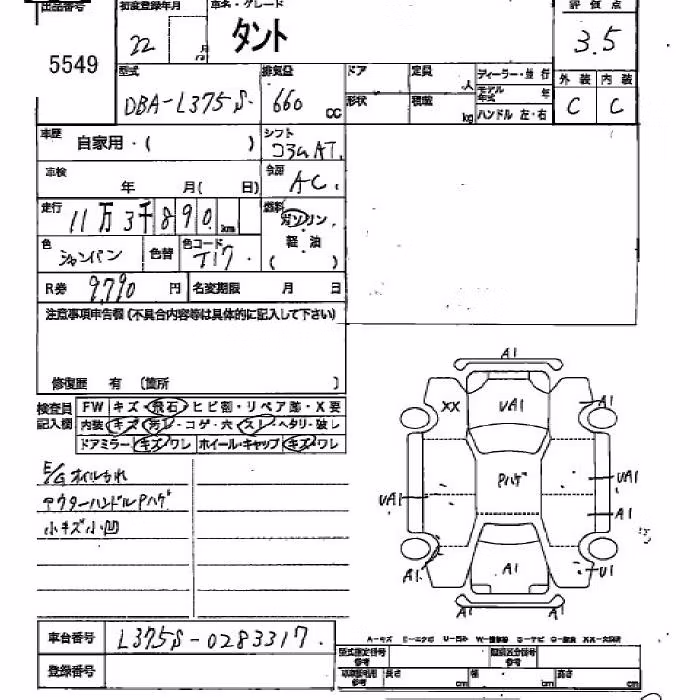 出品番号 初度登録年月 車名・グレード 評価点
5549 22 年 月 タント 3.5
型式 排気量 ドア 定員 人 ディーラー・並行 外装 内装
DBA-L375S 660 CC 形状 積載 kg モデル年式 年 ハンドル 左・右 C C
車歴 自家用・( ) シフト コラムAT
車検 年 月( 日) 冷房 AC
走行 11万3千890 km 燃料 ガソリン
軽油
( )
色 シャンパン 色替 色コード T17
R券 9,790 円 名変期限 月 日
注意事項申告欄(不具合内容等は具体的に記入して下さい)
修復歴 有 (箇所 )
検査員記入欄 FW キズ・飛石・ヒビ割・リペア跡・X要
内装 キズ・汚レ・コゲ・穴・スレ・ヘタリ・破レ
ドアミラー キズ・ワレ ホイール・キャップ キズ・ワレ
E/Gオイルもれ
アウターハンドルPハゲ
小キズ小凹
A1
XX UA1 A1
Pハゲ
UA1 UA1
A1
A1 A1 U1
A1 A1
車台番号 L375S-0283317
登録番号
A-キズ E-エクボ U-凹み W-補修跡 S-サビ C-腐食 XX-交換済
型式指定番号 参考 類別区分番号 参考
長さ cm 幅 cm 高さ cm